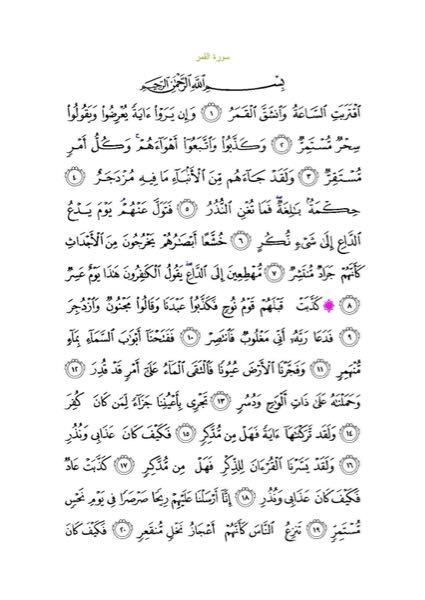 سورة القمر
بِسْمِ اللَّهِ الرَّحْمَٰنِ الرَّحِيمِ
ٱقْتَرَبَتِ ٱلسَّاعَةُ وَٱنشَقَّ ٱلْقَمَرُ ۝١ وَإِن يَرَوْا۟ ءَايَةً يُعْرِضُوا۟ وَيَقُولُوا۟
سِحْرٌ مُّسْتَمِرٌّ ۝٢ وَكَذَّبُوا۟ وَٱتَّبَعُوٓا۟ أَهْوَآءَهُمْ ۚ وَكُلُّ أَمْرٍ
مُّسْتَقِرٌّ ۝٣ وَلَقَدْ جَآءَهُم مِّنَ ٱلْأَنۢبَآءِ مَا فِيهِ مُزْدَجَرٌ ۝٤
حِكْمَةٌۢ بَـٰلِغَةٌ ۖ فَمَا تُغْنِ ٱلنُّذُرُ ۝٥ فَتَوَلَّ عَنْهُمْ ۘ يَوْمَ يَدْعُ
ٱلدَّاعِ إِلَىٰ شَىْءٍ نُّكُرٍ ۝٦ خُشَّعًا أَبْصَـٰرُهُمْ يَخْرُجُونَ مِنَ ٱلْأَجْدَاثِ
كَأَنَّهُمْ جَرَادٌ مُّنتَشِرٌ ۝٧ مُّهْطِعِينَ إِلَى ٱلدَّاعِ ۖ يَقُولُ ٱلْكَـٰفِرُونَ هَـٰذَا يَوْمٌ عَسِرٌ
۝٨ كَذَّبَتْ قَبْلَهُمْ قَوْمُ نُوحٍ فَكَذَّبُوا۟ عَبْدَنَا وَقَالُوا۟ مَجْنُونٌ وَٱزْدُجِرَ
۝٩ فَدَعَا رَبَّهُۥٓ أَنِّى مَغْلُوبٌ فَٱنتَصِرْ ۝١٠ فَفَتَحْنَآ أَبْوَٰبَ ٱلسَّمَآءِ بِمَآءٍ
مُّنْهَمِرٍ ۝١١ وَفَجَّرْنَا ٱلْأَرْضَ عُيُونًا فَٱلْتَقَى ٱلْمَآءُ عَلَىٰٓ أَمْرٍ قَدْ قُدِرَ ۝١٢
وَحَمَلْنَـٰهُ عَلَىٰ ذَاتِ أَلْوَٰحٍ وَدُسُرٍ ۝١٣ تَجْرِى بِأَعْيُنِنَا جَزَآءً لِّمَن كَانَ كُفِرَ
۝١٤ وَلَقَد تَّرَكْنَـٰهَآ ءَايَةً فَهَلْ مِن مُّدَّكِرٍ ۝١٥ فَكَيْفَ كَانَ عَذَابِى وَنُذُرِ
۝١٦ وَلَقَدْ يَسَّرْنَا ٱلْقُرْءَانَ لِلذِّكْرِ فَهَلْ مِن مُّدَّكِرٍ ۝١٧ كَذَّبَتْ عَادٌ
فَكَيْفَ كَانَ عَذَابِى وَنُذُرِ ۝١٨ إِنَّآ أَرْسَلْنَا عَلَيْهِمْ رِيحًا صَرْصَرًا فِى يَوْمِ نَحْسٍ
مُّسْتَمِرٍّ ۝١٩ تَنزِعُ ٱلنَّاسَ كَأَنَّهُمْ أَعْجَازُ نَخْلٍ مُّنقَعِرٍ ۝٢٠ فَكَيْفَ كَانَ